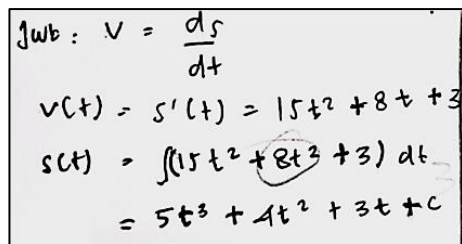 Jwb : V = ds/dt
v(t) = s'(t) = 15t² + 8t + 3
s(t) = ∫(15t² + 8t² + 3) dt
= 5t³ + 4t² + 3t + C